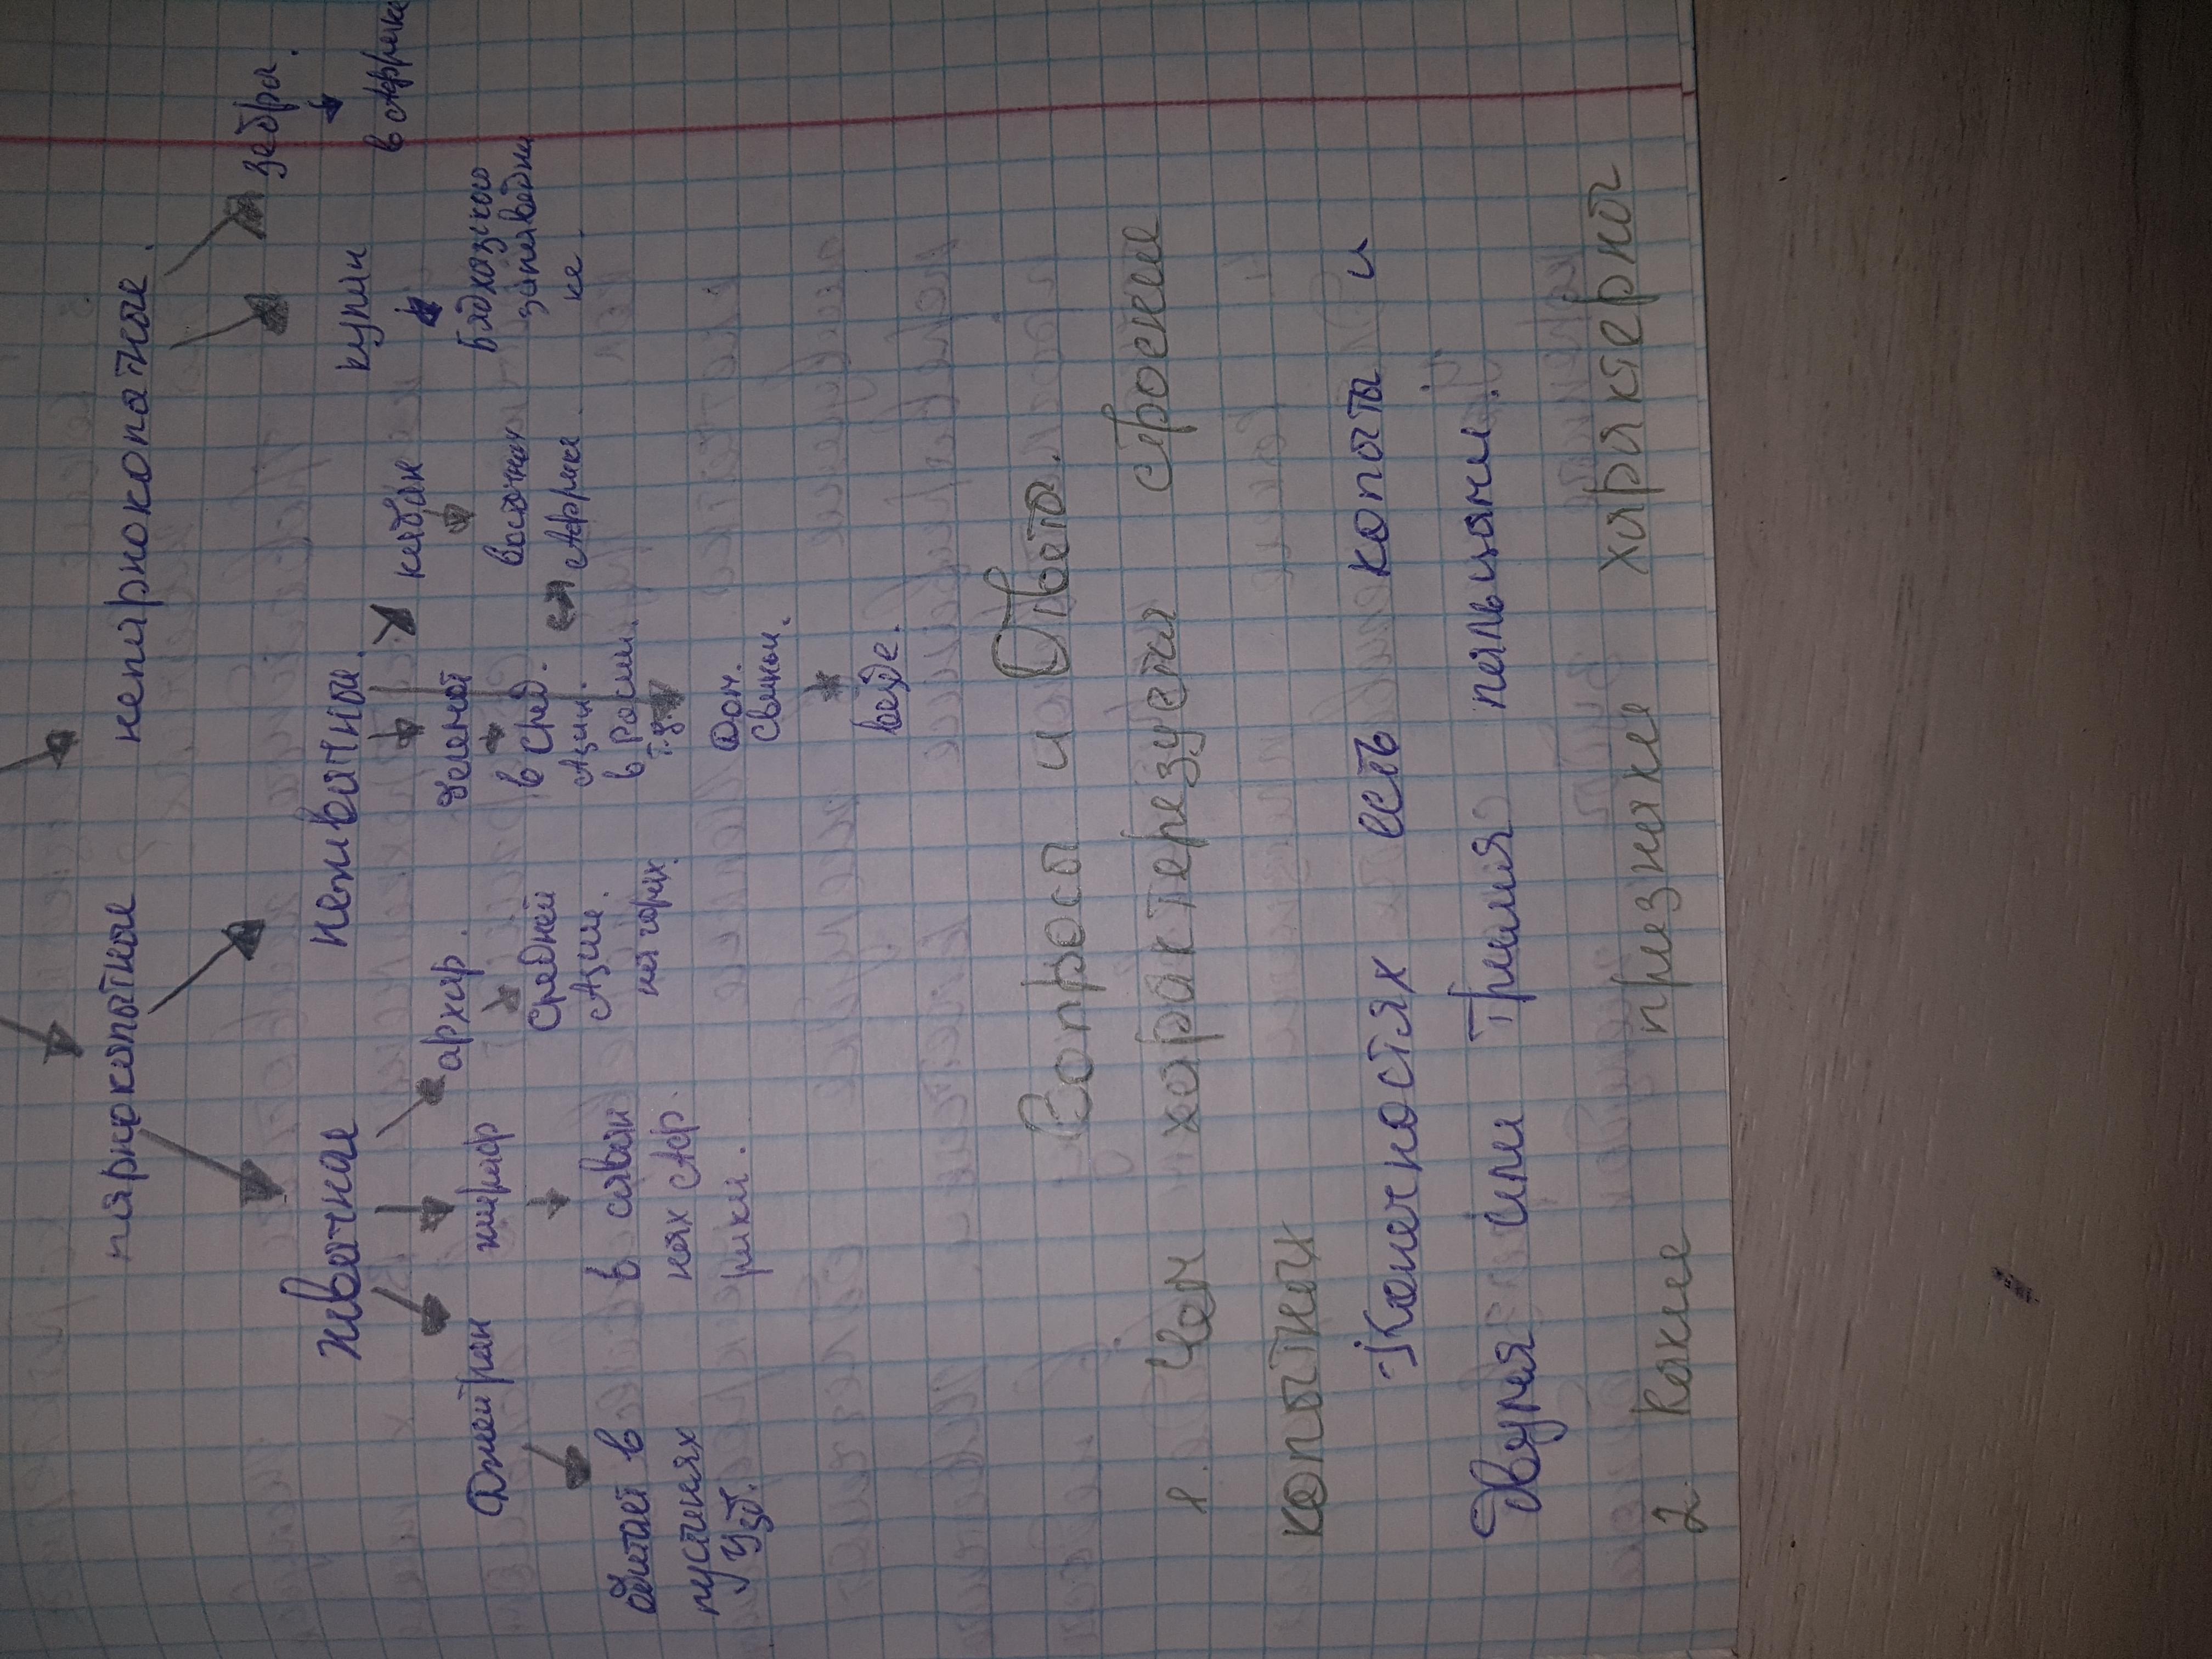 парнокопытные непарнокопатные.
жвачная нежвачные. кулан зебра.
Джейран жираф архар. кабан
обитает в пустенях Узб.
в саванн
нях Аф
рики.
Средней
Ации.
на горах.
в Сред.
Ации.
в Росии.
т.д.
Дом.
Свиньи.
везде.
восточная
Африка.
Бадхозкого
заповедни
ке.
в Африке
Вопросы и Ответы.
1. Чем характерезуется строение
копытных
- Конечностях есть копыты и
Двумя или тремя пальцами.
2. Какие презнаке характерног